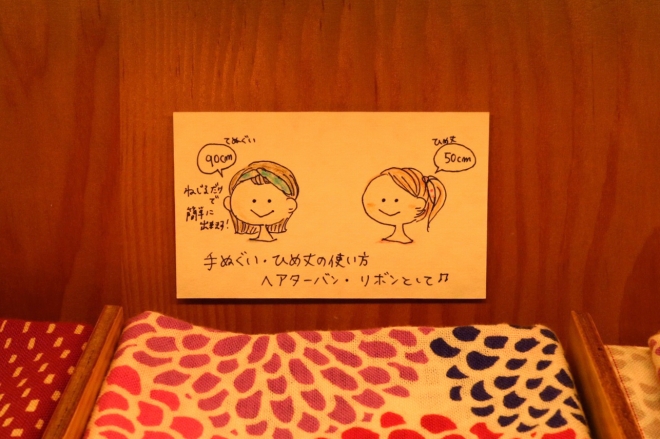 てぬぐい
90cm
ねじるだけ
で
簡単に
出来ます!
ひめ丈
50cm
手ぬぐい・ひめ丈の使い方
ヘアターバン・リボンとして♫